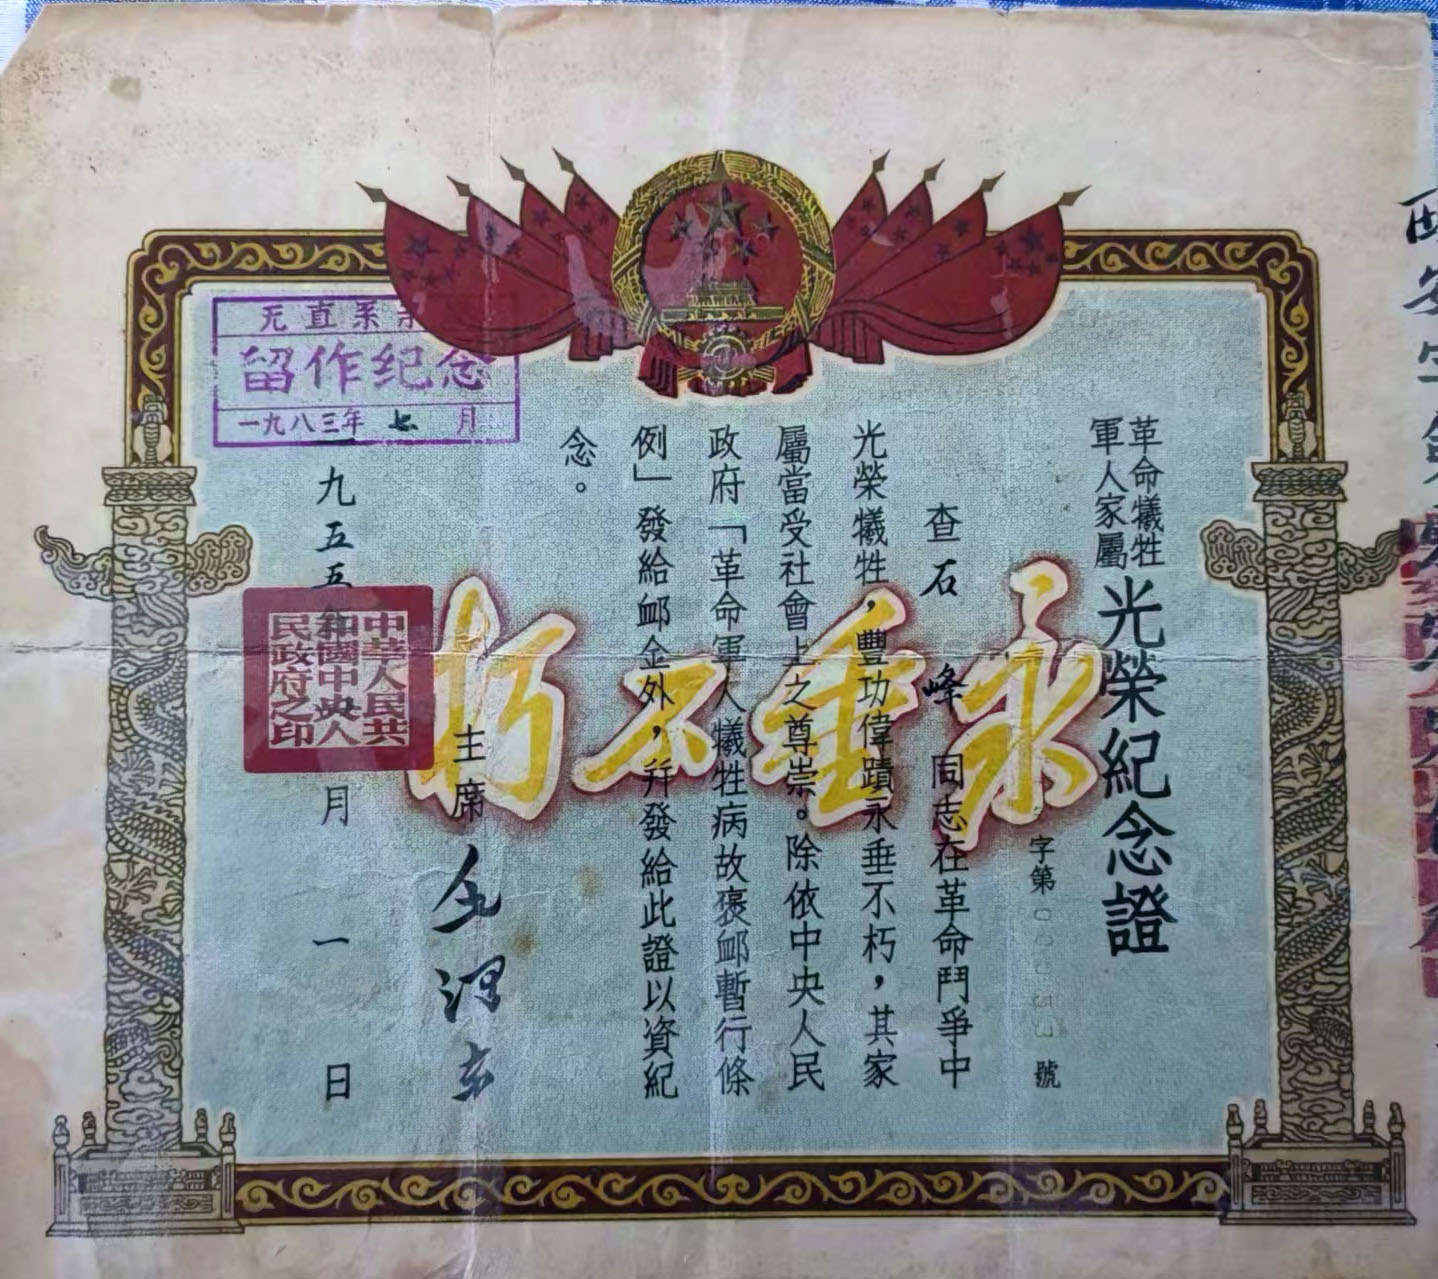 革命犧牲
軍人家屬
光榮紀念證
字第
號
查石峰同志在革命鬥爭中
光榮犧牲,豐功偉蹟永垂不朽,其家
屬當受社會上之尊崇。除依中央人民
政府「革命軍人犧牲病故褒卹暫行條
例」發給卹金外,幷發給此證以資紀
念。
主席 毛澤东
一九五五年 月 一 日
永垂不朽
中華人民共
和國中央人
民政府之印
无直系亲
留作纪念
一九八三年 七 月